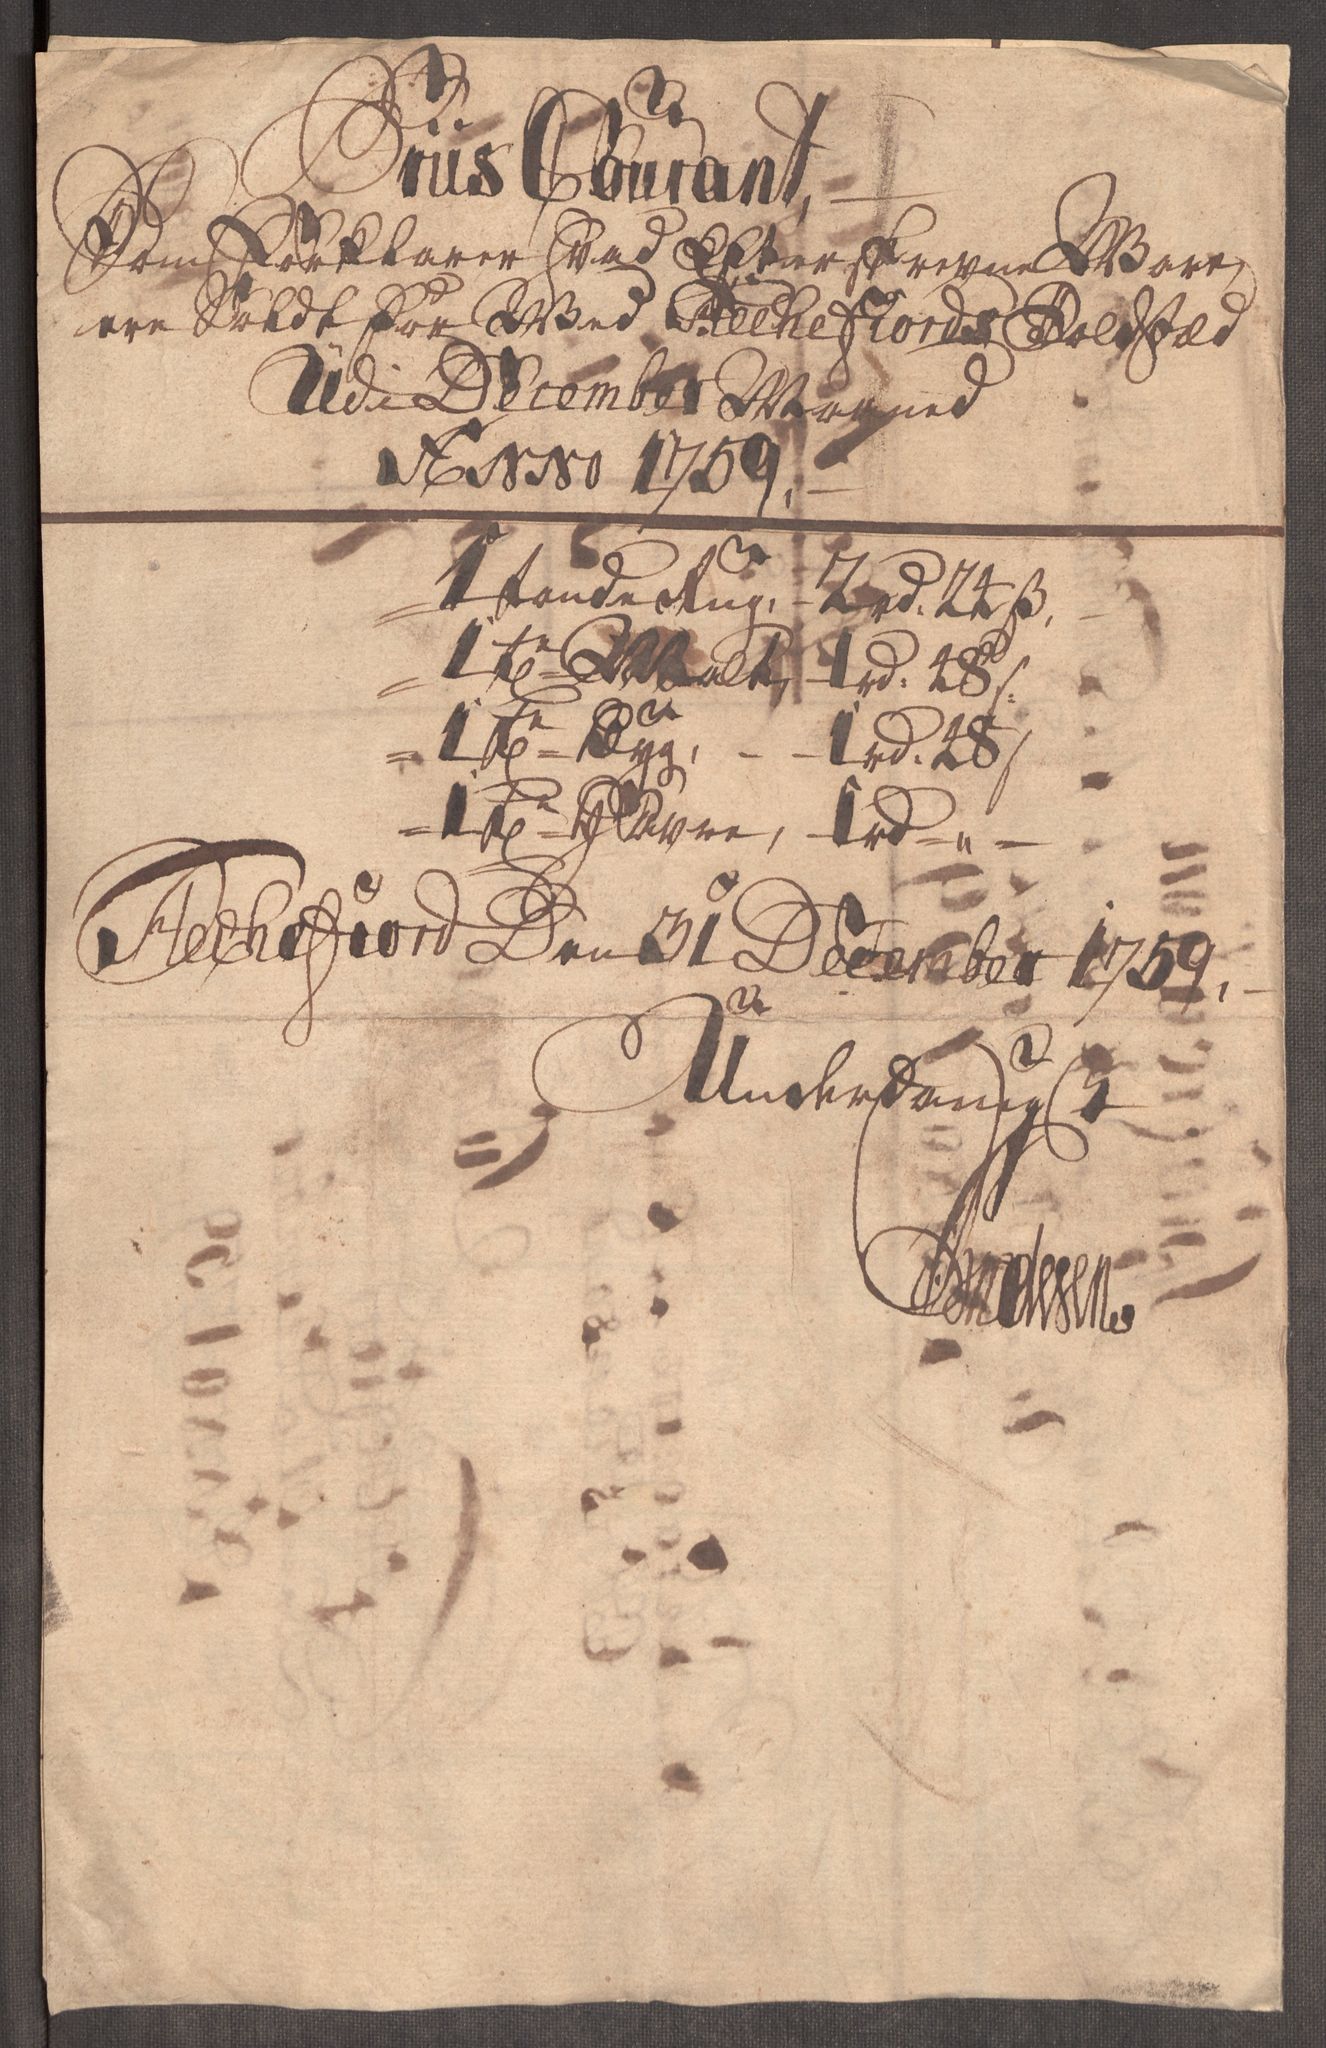 Priis Courant,
Som Forklarer hvad Efterskrevne Ware,
ere Soldt for Wed Flechefiords Toldstæd
Udi December Maaned
ANNO 1759,
1 tønde Rug, - 2 rd. 24 ß,
1 tde Malt, 1 rd. 48 ß.
1 tde Byg, - - 1 rd. 48 ß
1 tde Havre, 1 rd - " -
Flechefiord Den 31 December 1759,
Underdanigst